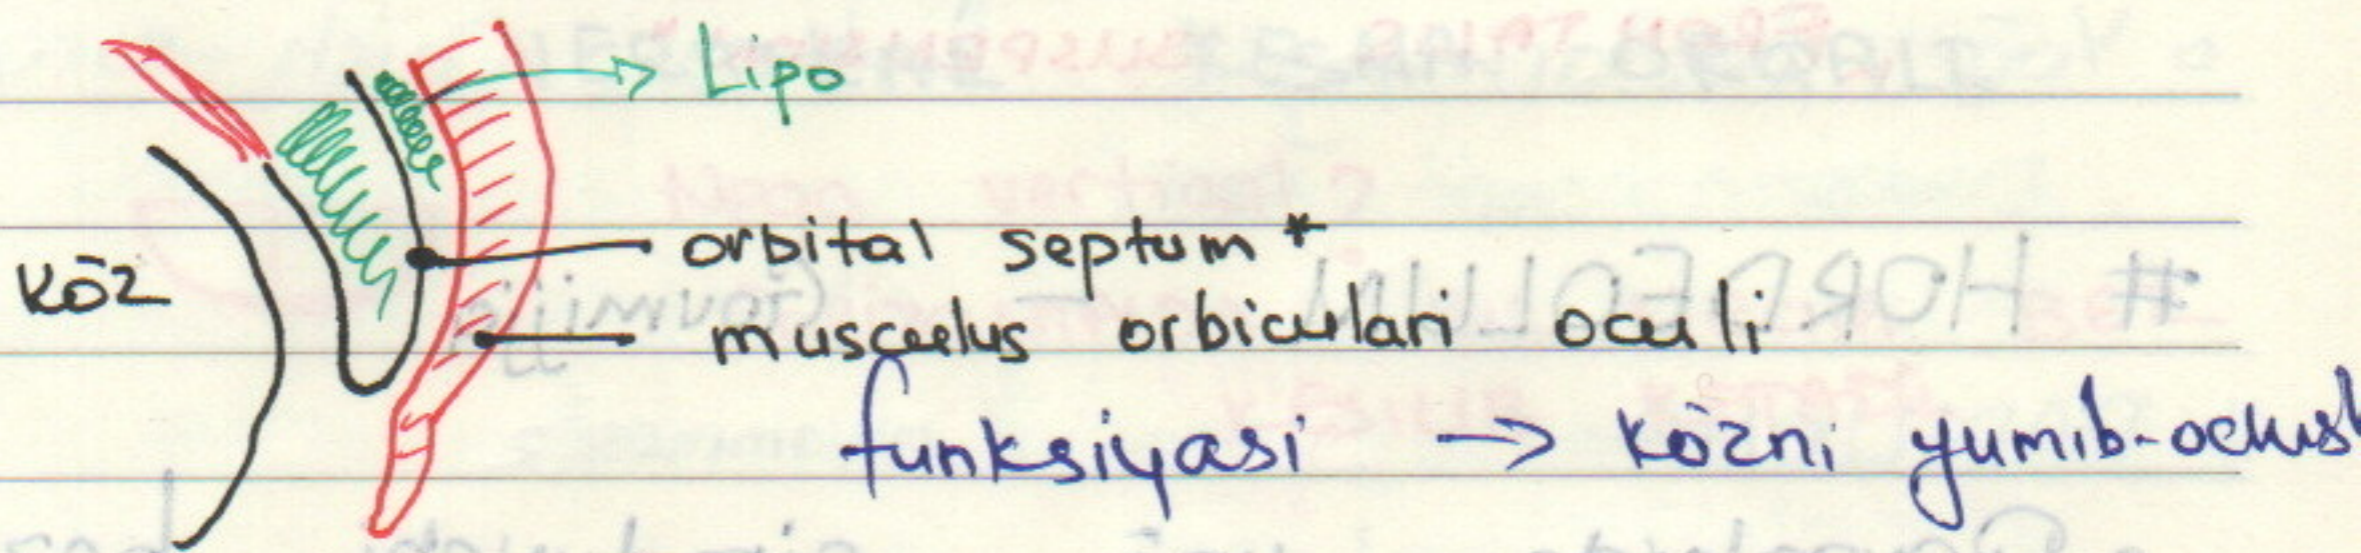 Lipo
orbital septum *
köz
musculus orbiculari oculi
funksiyasi → közni yumib-ochish